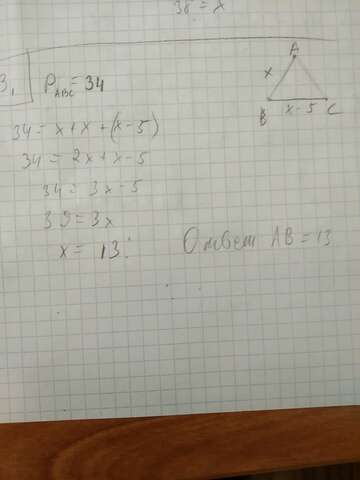 38 = x
3,
P_ABC = 34
A
x
B
x - 5
C
34 = x + x + (x - 5)
34 = 2x + x - 5
34 = 3x - 5
39 = 3x
x = 13
Ответ AB = 13